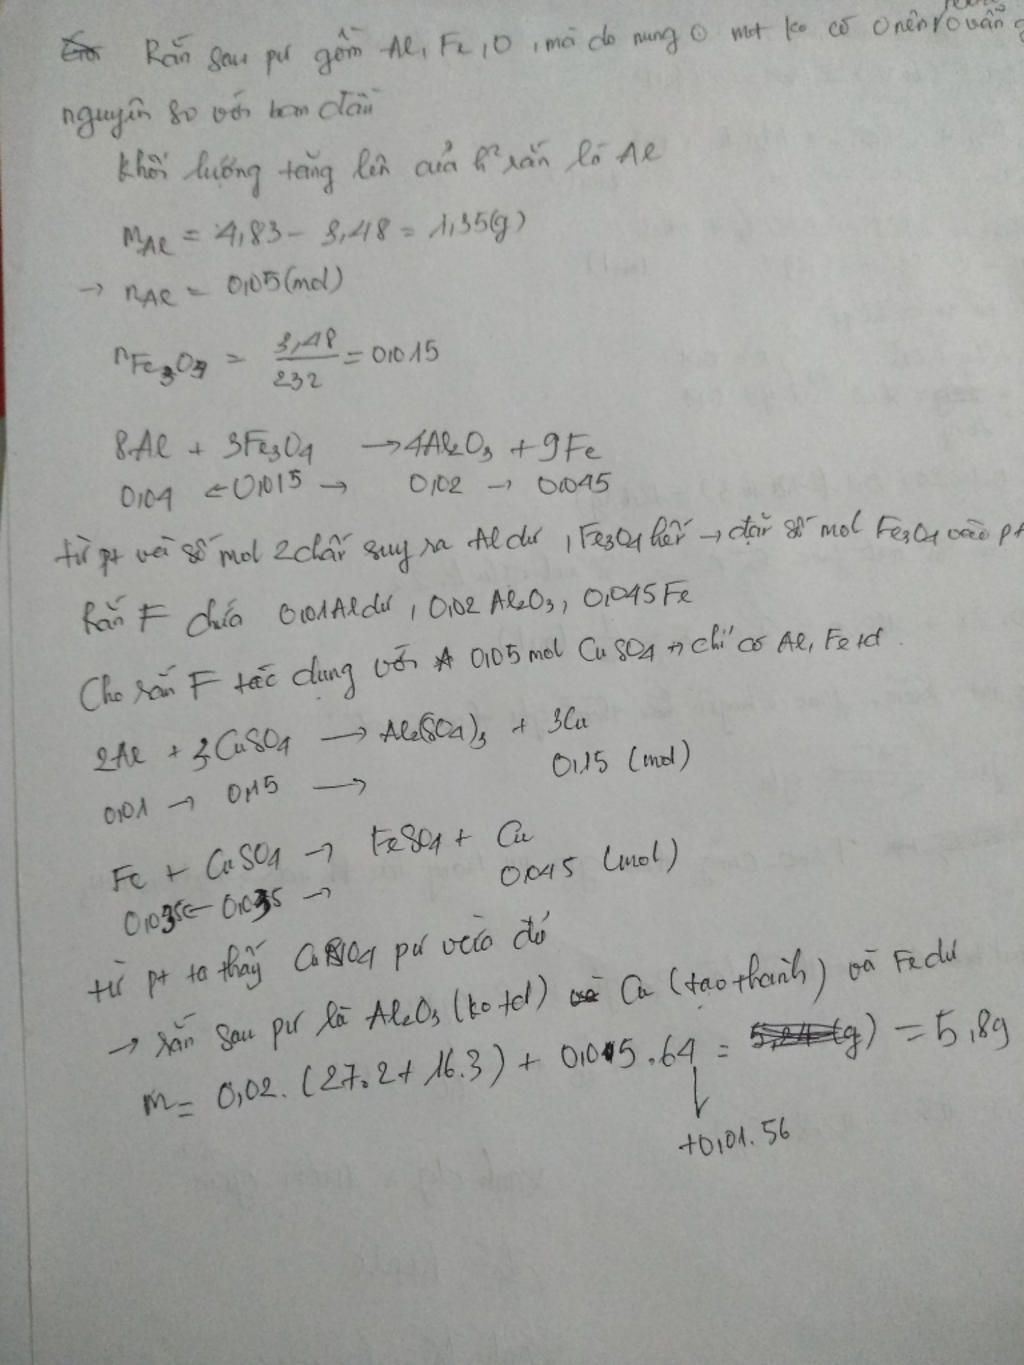 Rắn sau pư gồm Al, Fe, O, mà do nung O mt ko có O nên O vẫn
nguyên so với ban đầu
Khối lượng tăng lên của h² rắn là Al
mAl = 4,83 - 3,48 = 1,35(g)
→ nAl = 0,05(mol)
nFe3O4 = 3,48/232 = 0,015
8Al + 3Fe3O4 → 4Al2O3 + 9Fe
0,04 ← 0,015 → 0,02 → 0,045
từ pt và số mol 2 chất suy ra Al dư, Fe3O4 hết → đặt số mol Fe3O4 vào pt
Rắn F chứa 0,01 Al dư, 0,02 Al2O3, 0,045 Fe
Cho rắn F tác dụng với 0,05 mol CuSO4 → chỉ có Al, Fe td.
2Al + 3CuSO4 → Al2(SO4)3 + 3Cu
0,01 → 0,15 → 0,15 (mol)
Fe + CuSO4 → FeSO4 + Cu
0,035 ← 0,035 → 0,045 (mol)
từ pt ta thấy CuSO4 pư vừa đủ
→ rắn sau pư là Al2O3 (ko td) và Cu (tạo thành) và Fe dư
m = 0,02.(27.2+16.3) + 0,05.64 = (g) = 5,8g
+0,01.56